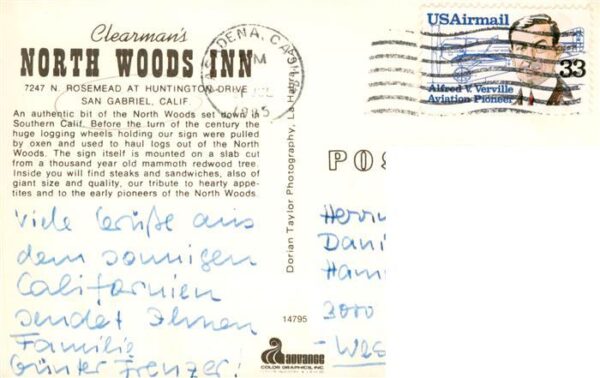 Clearman's
NORTH WOODS INN
7247 N. ROSEMEAD AT HUNTINGTON DRIVE
SAN GABRIEL, CALIF.
An authentic bit of the North Woods set down in
Southern Calif. Before the turn of the century the
huge logging wheels holding our sign were pulled
by oxen and used to haul logs out of the North
Woods. The sign itself is mounted on a slab cut
from a thousand year old mammoth redwood tree.
Inside you will find steaks and sandwiches, also of
giant size and quality, our tribute to hearty appe-
tites and to the early pioneers of the North Woods.
Viele Grüße aus
dem sonnigen
Californien
sendet Ihnen
Familie
Günter Frenzer!
Dorian Taylor Photography, La Habra
14795
advance
COLOR GRAPHICS, INC.
PASADENA, CA
PM
1985
USAirmail
33
Alfred V. Verville
Aviation Pioneer
POS
Herrn
Dani
Hann
3000